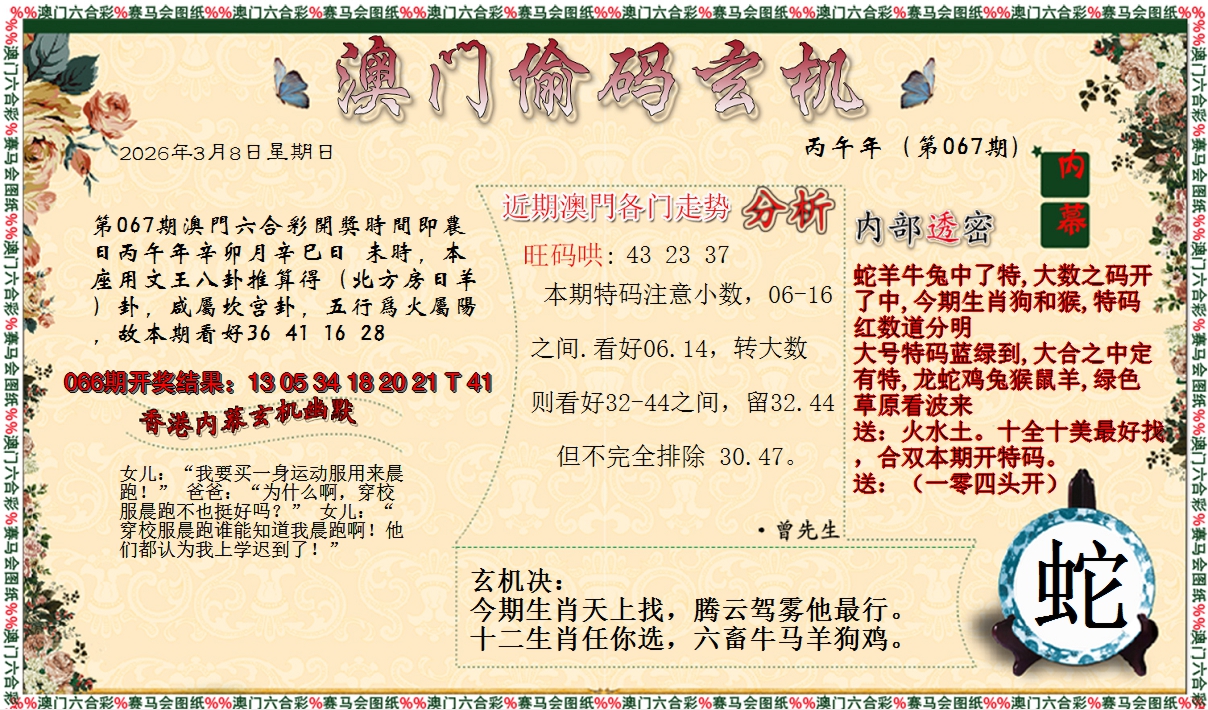 %%澳门六合彩%赛马会图纸%%澳门六合彩%赛马会图纸%%澳门六合彩%赛马会图纸%%澳门六合彩%赛马会图纸%%澳门六合彩%赛马会图纸%%澳门六合彩%赛马会图纸%%
澳门偷码玄机
2026年3月8日星期日
丙午年（第067期）
内幕
第067期澳門六合彩開獎時間即農
日丙午年辛卯月辛巳日 未時，本
座用文王八卦推算得（北方房日羊
）卦，咸屬坎宫卦，五行爲火屬陽
，故本期看好36 41 16 28
066期开奖结果：13 05 34 18 20 21 T 41
香港内幕玄机幽默
女儿：“我要买一身运动服用来晨
跑！” 爸爸：“为什么啊，穿校
服晨跑不也挺好吗？” 女儿：“
穿校服晨跑谁能知道我晨跑啊！他
们都认为我上学迟到了！”
近期澳門各门走势 分析
旺码哄: 43 23 37
本期特码注意小数，06-16
之间.看好06.14，转大数
则看好32-44之间，留32.44
但不完全排除 30.47。
·曾先生
内部透密
蛇羊牛兔中了特,大数之码开
了中,今期生肖狗和猴,特码
红数道分明
大号特码蓝绿到,大合之中定
有特,龙蛇鸡兔猴鼠羊,绿色
草原看波来
送：火水土。十全十美最好找
，合双本期开特码。
送：（一零四头开）
玄机决：
今期生肖天上找，腾云驾雾他最行。
十二生肖任你选，六畜牛马羊狗鸡。
蛇
%%澳门六合彩%赛马会图纸%%澳门六合彩%赛马会图纸%%澳门六合彩%赛马会图纸%%澳门六合彩%赛马会图纸%%澳门六合彩%赛马会图纸%%澳门六合彩%赛马会图纸%%